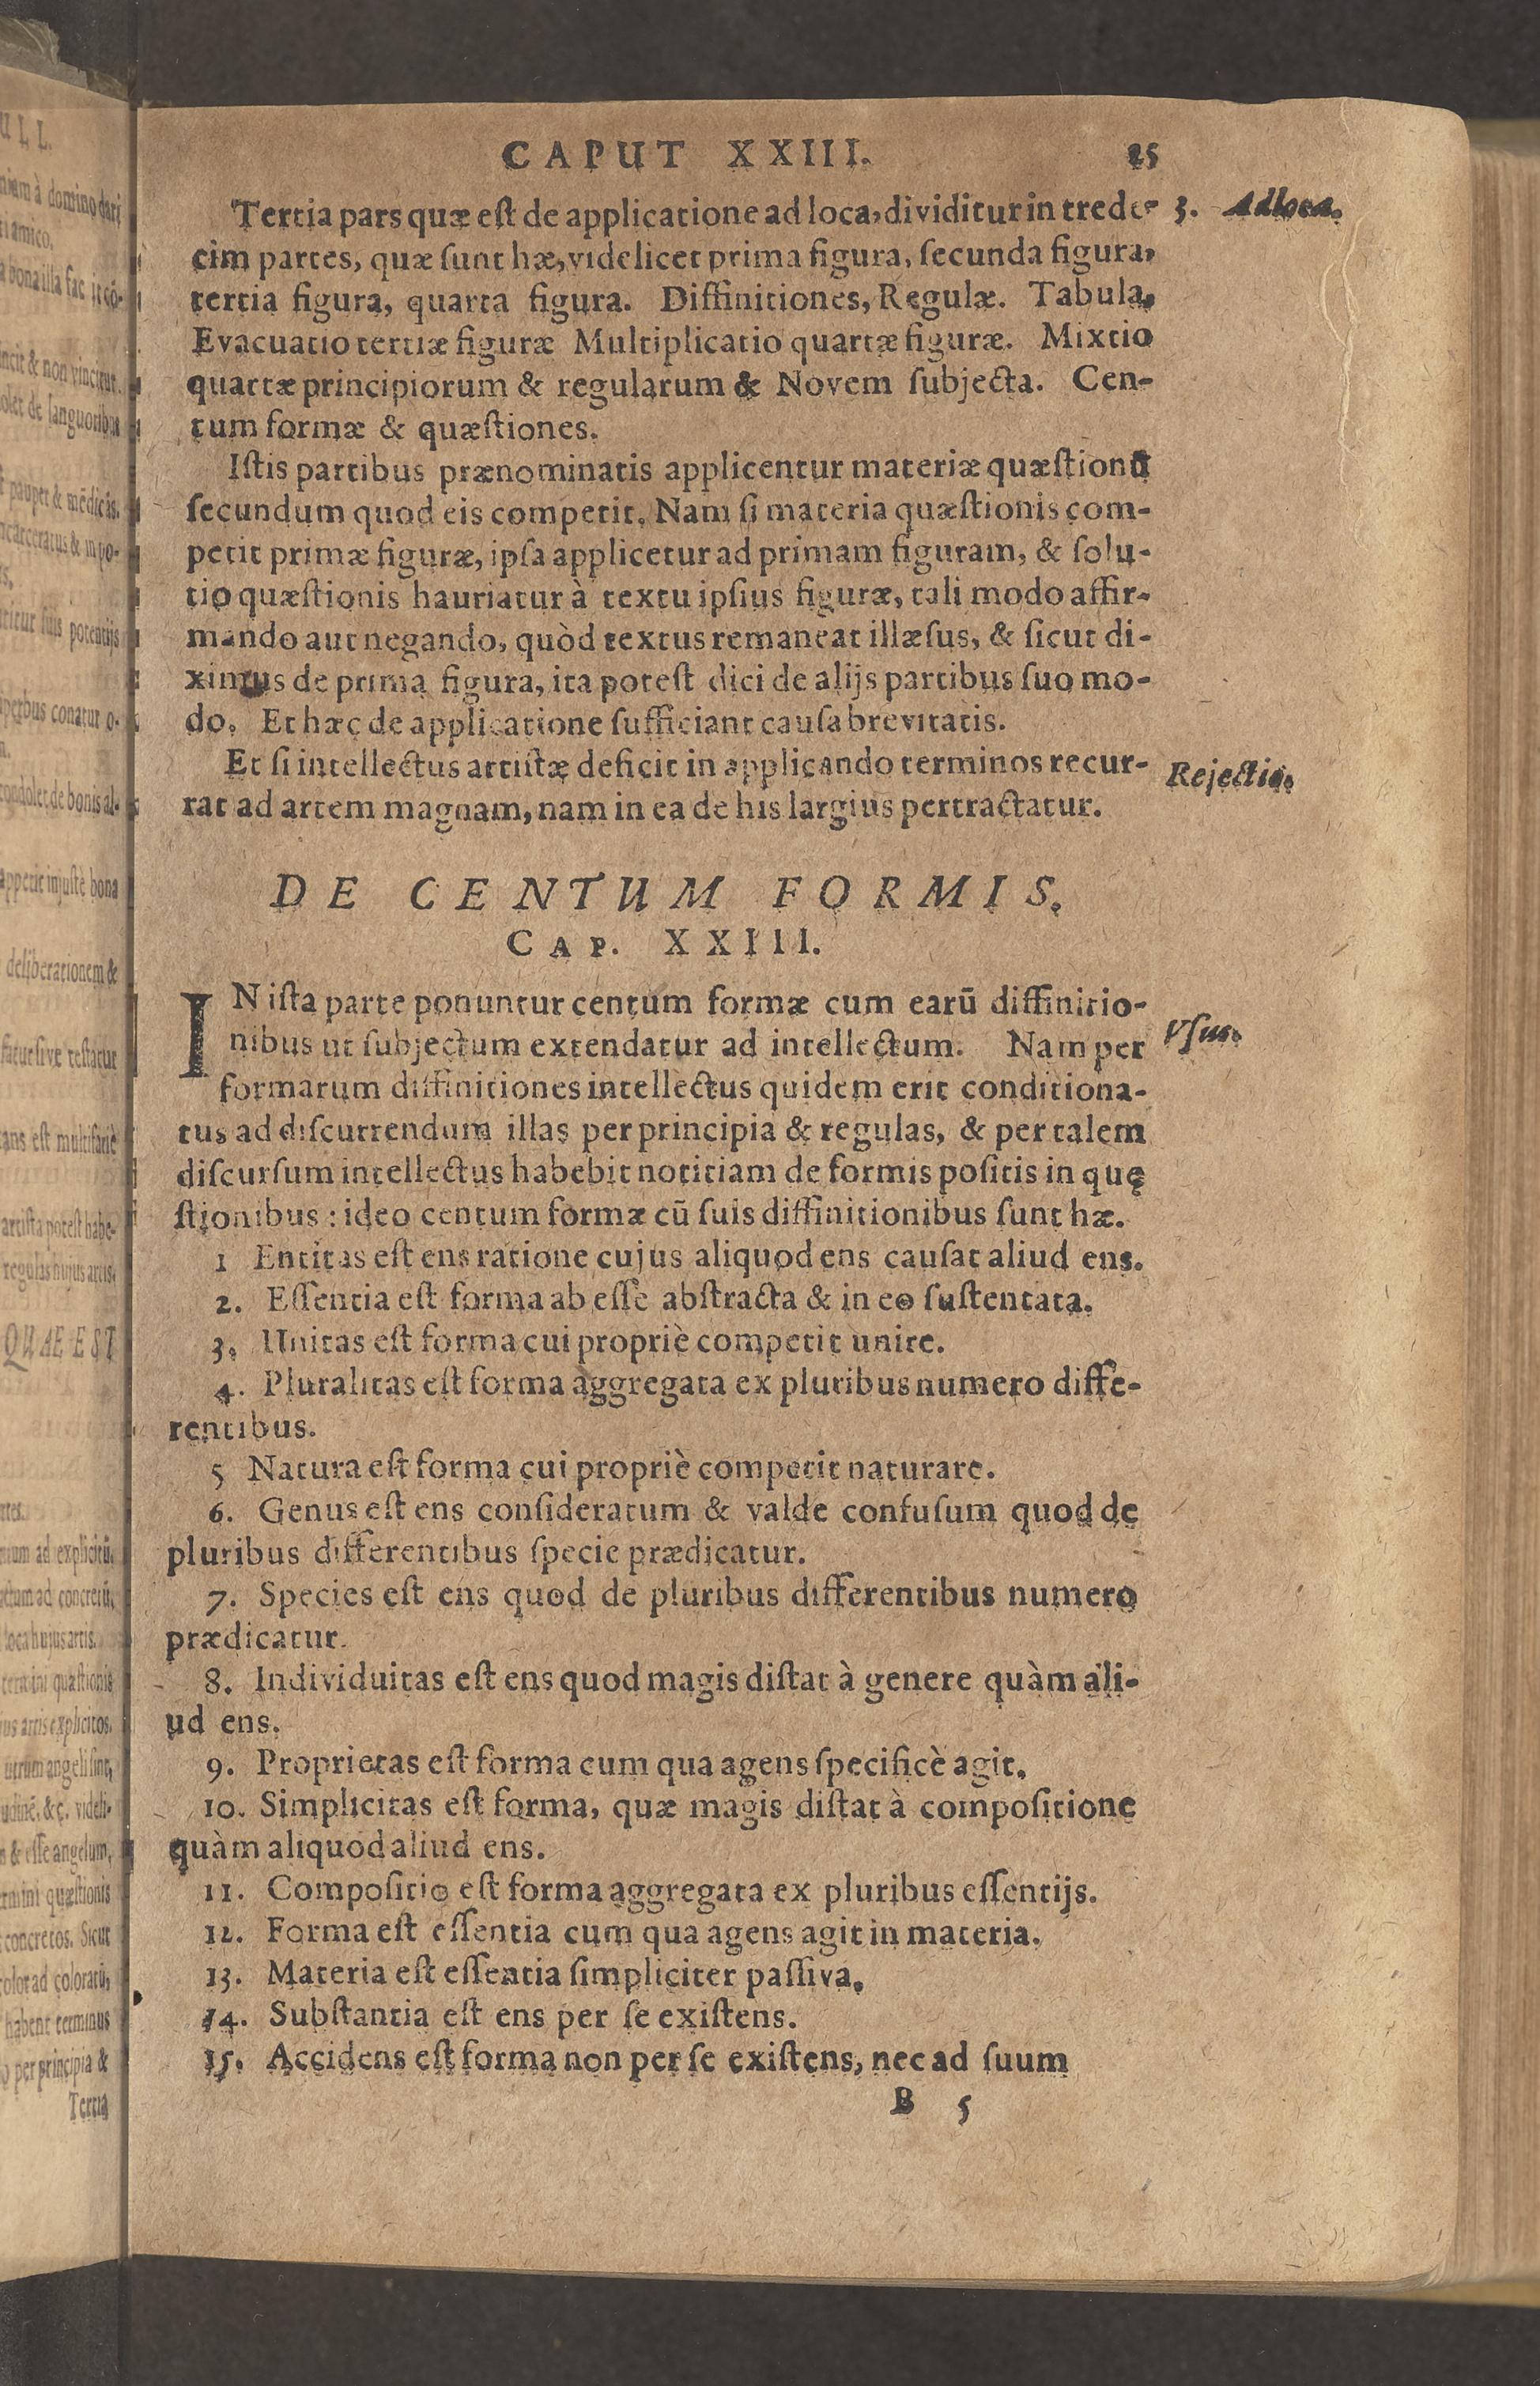 CAPUT XXIII. 25
Tertia pars quæ est de applicatione ad loca, dividitur in trede- 3. Ad loca.
cim partes, quæ sunt hæ, videlicet prima figura, secunda figura,
tertia figura, quarta figura. Diffinitiones, Regulæ. Tabula,
Evacuatio tertiæ figuræ Multiplicatio quartæ figuræ. Mixtio
quartæ principiorum & regularum & Novem subjecta. Cen-
tum formæ & quæstiones.
Istis partibus prænominatis applicentur materiæ quæstionū
secundum quod eis competit. Nam si materia quæstionis com-
petit primæ figuræ, ipsa applicetur ad primam figuram, & solu-
tio quæstionis hauriatur à textu ipsius figuræ, tali modo affir-
mando aut negando, quòd textus remaneat illæsus, & sicut di-
ximus de prima figura, ita potest dici de alijs partibus suo mo-
do. Et hæc de applicatione sufficiant causa brevitatis.
Et si intellectus artistæ deficit in applicando terminos recur- Rejectio.
rat ad artem magnam, nam in ea de his largius pertractatur.
DE CENTUM FORMIS.
CAP. XXIII.
IN ista parte ponuntur centum formæ cum earū diffinitio-
nibus ut subjectum extendatur ad intellectum. Nam per Vsus.
formarum diffinitiones intellectus quidem erit conditiona-
tus ad discurrendum illas per principia & regulas, & per talem
discursum intellectus habebit notitiam de formis positis in quę
stionibus : ideo centum formæ cū suis diffinitionibus sunt hæ.
1 Entitas est ens ratione cujus aliquod ens causat aliud ens.
2. Essentia est forma ab esse abstracta & in eo sustentata.
3. Unitas est forma cui propriè competit unire.
4. Pluralitas est forma àggregata ex pluribus numero diffe-
rentibus.
5 Natura est forma cui propriè competit naturare.
6. Genus est ens consideratum & valde confusum quod de
pluribus differentibus specie prædicatur.
7. Species est ens quod de pluribus differentibus numero
prædicatur.
8. Individuitas est ens quod magis distat à genere quàm ali-
ud ens.
9. Proprietas est forma cum qua agens specificè agit.
10. Simplicitas est forma, quæ magis distat à compositione
quàm aliquod aliud ens.
11. Compositio est forma aggregata ex pluribus essentijs.
12. Forma est essentia cum qua agens agit in materia.
13. Materia est essentia simpliciter passiva.
14. Substantia est ens per se existens.
15. Accidens est forma non per se existens, nec ad suum
B 5